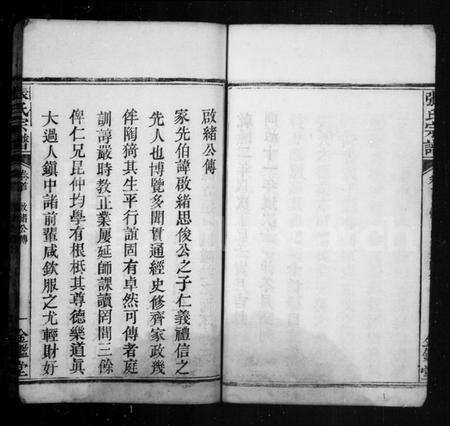 啟緒公傳
家先伯諱啟緒思俊公之子仁義禮信之
先人也博覽多聞貫通經史修齊家政幾
侔陶猗其生平行誼固有卓然可傳者庭
訓諄嚴時教正業屢延師課讀罔間三餘
俾仁兄昆仲均學有根柢其尊德樂道真
大過人鎮中諸前輩咸欽服之尤輕財好
張氏宗譜
卷首
啟緒公傳
一
金鑑堂
張氏宗譜
金鑑堂